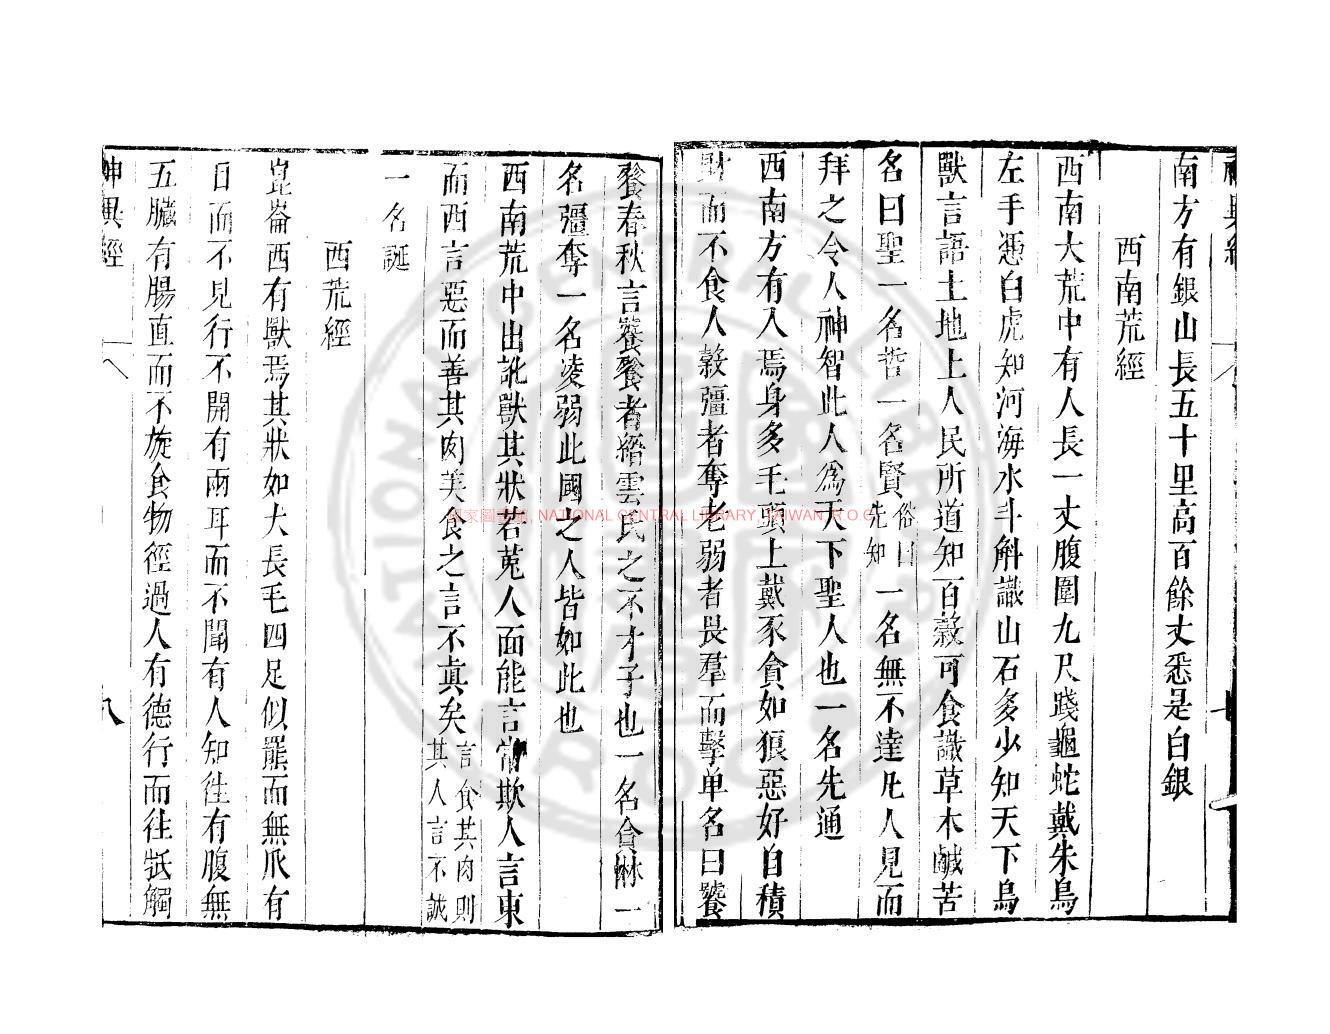 神異經
南方有銀山長五十里高百餘丈悉是白銀
西南荒經
西南大荒中有人長一丈腹圍九尺踐龜蛇戴朱鳥
左手憑白虎知河海水斗斛識山石多少知天下鳥
獸言語土地上人民所道知百穀可食識草木鹹苦
名曰聖一名哲一名賢俗曰先知一名無不達凡人見而
拜之令人神智此人為天下聖人也一名先通
西南方有人焉身多毛頭上戴豕貪如狼惡好自積
財而不食人穀彊者奪老弱者畏羣而擊单名曰饕
餮春秋言饕餮者縉雲氏之不才子也一名貪惏一
名彊奪一名凌弱此國之人皆如此也
西南荒中出訛獸其狀若菟人面能言常欺人言東
而西言惡而善其肉美食之言不真矣言食其肉則其人言不誠
一名誕
西荒經
崑崙西有獸焉其狀如犬長毛四足似羆而無爪有
目而不見行不開有兩耳而不聞有人知徃有腹無
五臟有腸直而不旋食物徑過人有德行而往牴觸
神異經
八
國家圖書館 NATIONAL CENTRAL LIBRARY, TAIWAN (R.O.C)